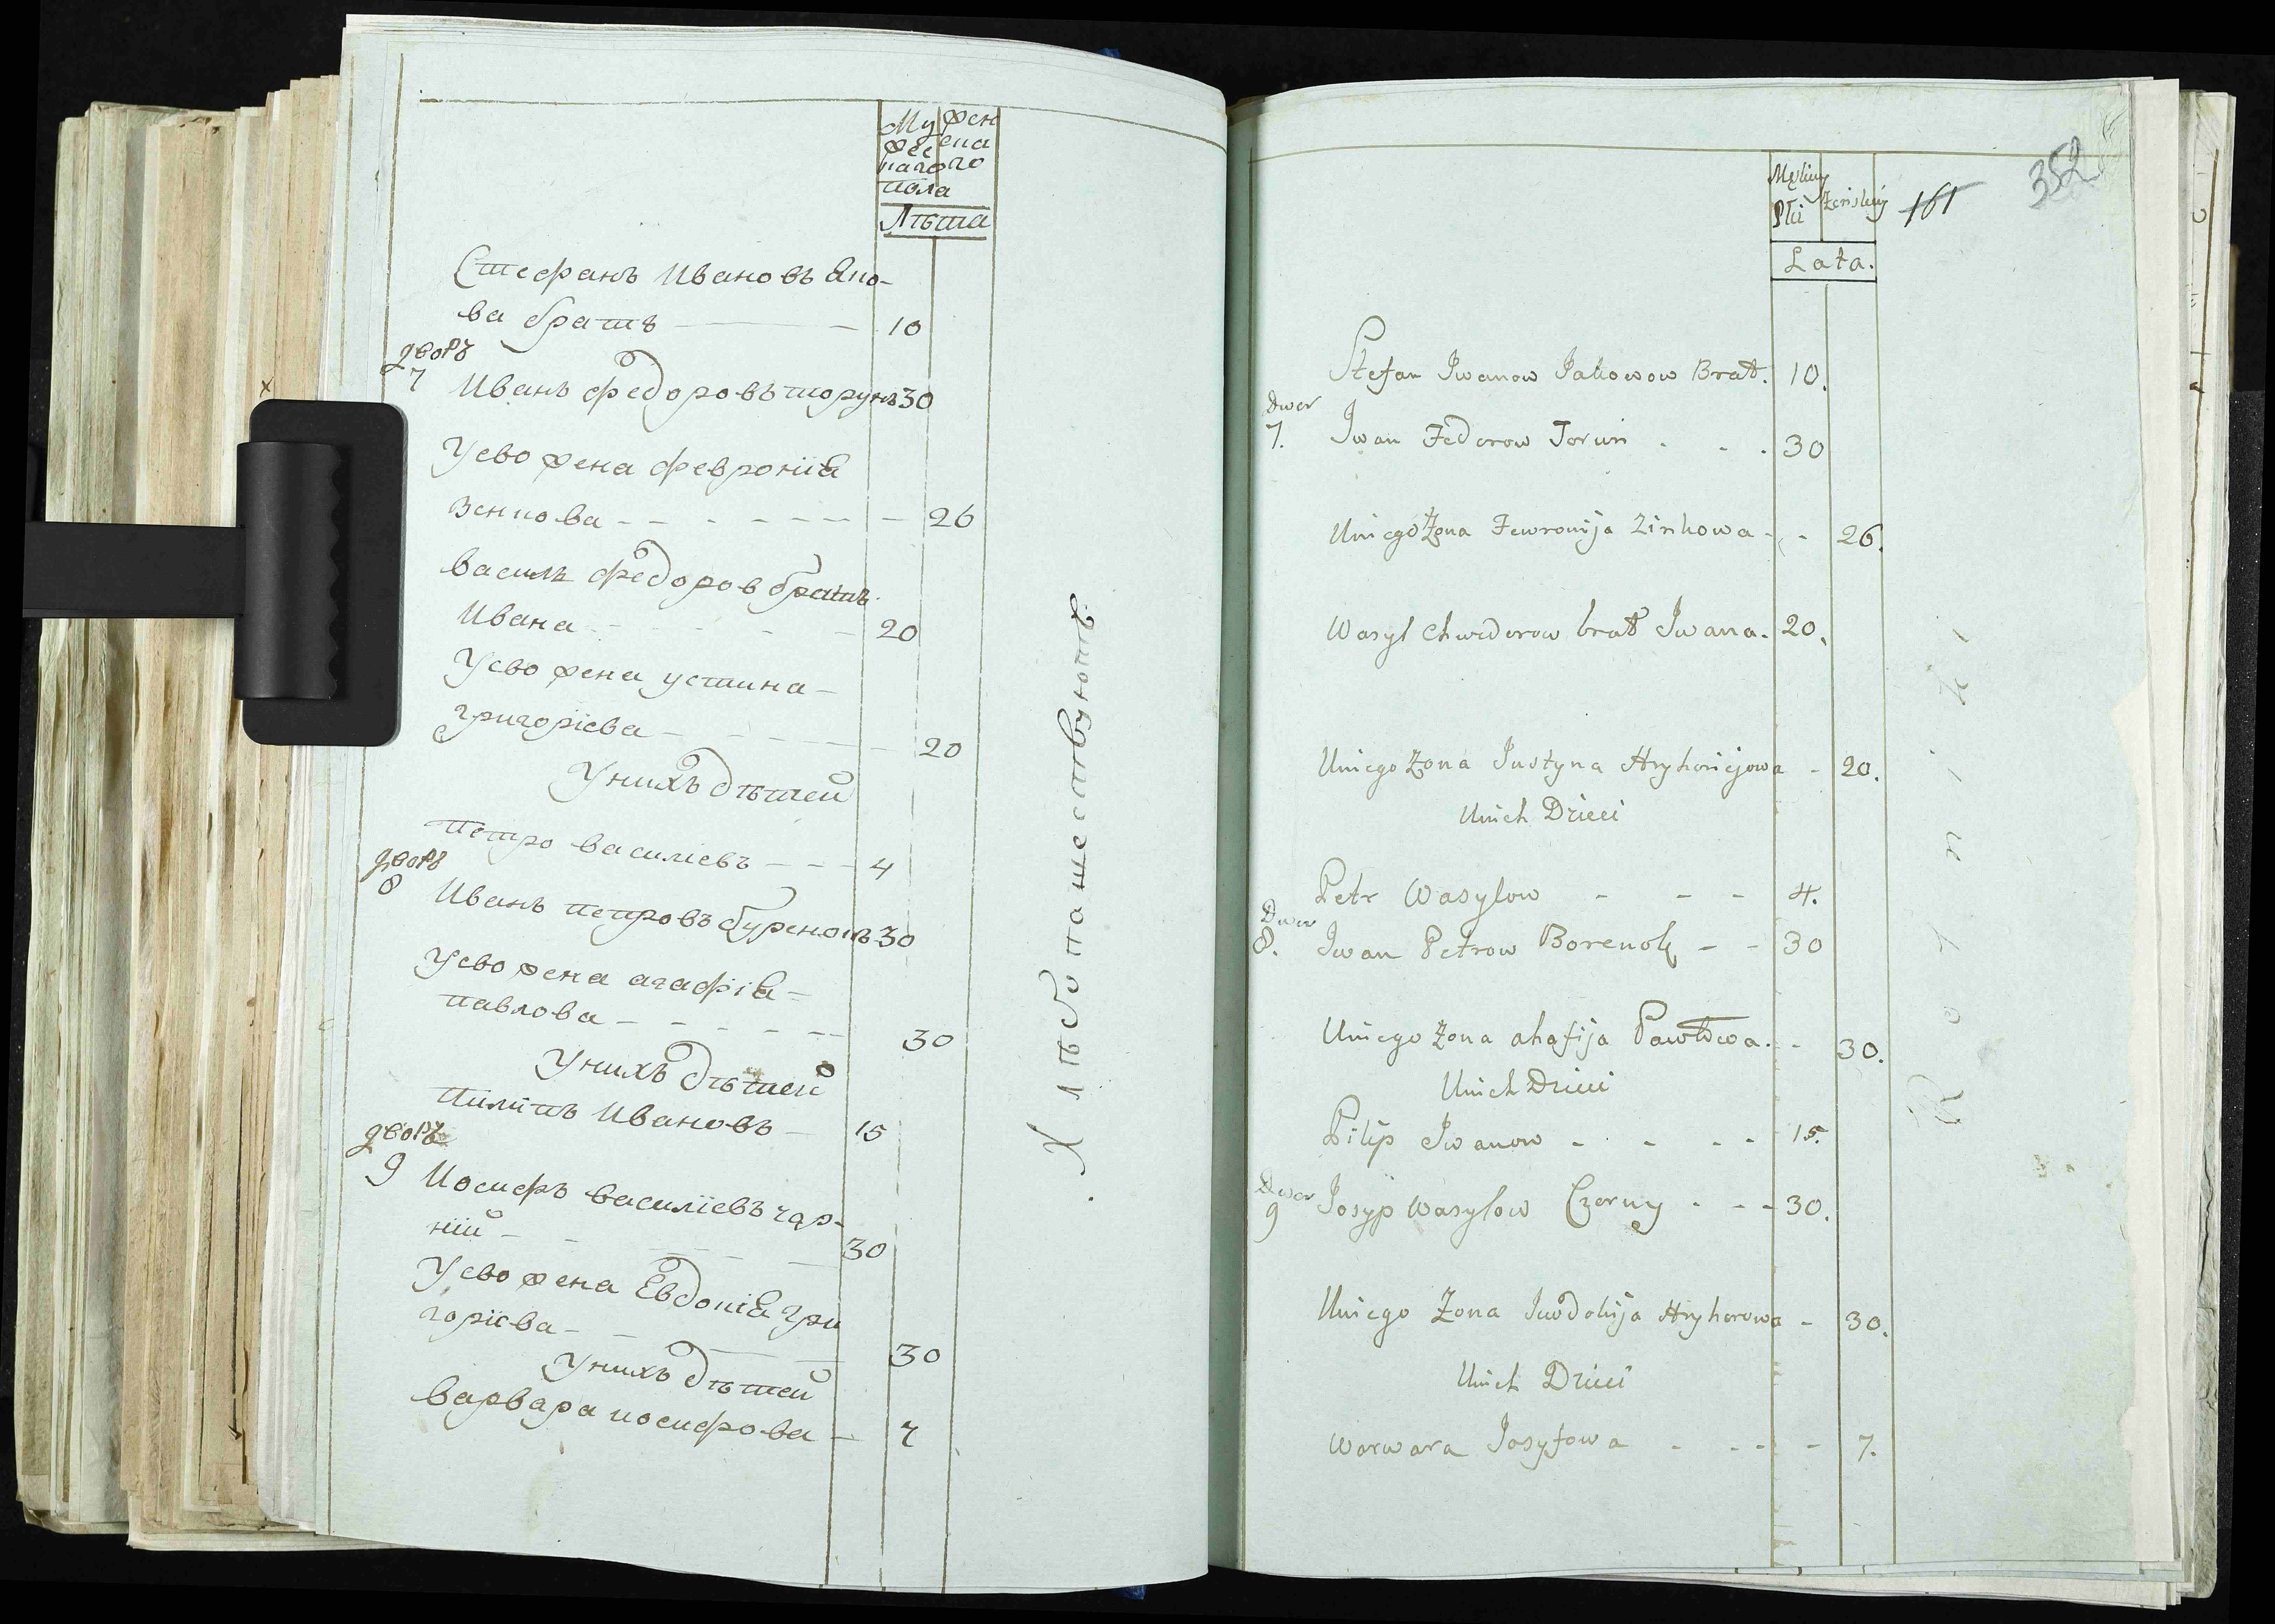 Мужескаго
Женскаго
пола
Лѣта
Стефанъ Ивановъ Яко-
ва братъ — 10
дворъ
7 Иванъ федоровъ торунъ 30
Уево жена феврониѣ
Зенкова - - - - - - - 26
василь федоров братъ
Ивана - - - - - 20
Уево жена устина -
григориева - - - - - - 20
Унихъ дѣтей
петро василиевъ - - - 4
дворъ
8 Иванъ петровъ буренокъ 30
Уево жена агафиѣ -
павлова - - - - - - - 30
Унихъ дѣтей
пилипъ Ивановъ - 15
дворъ
9 Иосифъ василиевъ чор-
нiй - - - - - - 30
Уево жена Евдокиѣ гри
гориева - - - - 30
Унихъ дѣтей
варвара иосифова - 7
Хлѣбопашествуютъ
352
161
Męskiey
Płci
Żeńskiey
Lata.
Stefan Jwanow Jakowow Brat. 10.
Dwor
7. Jwan Fedorow Torun - - - 30
Uniego Żona Fewronija Zinkowa - - 26.
Wasyl Chwedorow brat Jwana. 20.
Uniego Żona Justyna Hryhoriejowa - 20.
Unich Dzieci
Petr Wasylow - - - 4.
Dwor
8. Jwan Petrow Borenok - - 30
Uniego Żona ahafija Pawłowa. - 30.
Unich Dzieci
Pilip Jwanow - - - - 15.
Dwor
9 Josyp Wasylow Czorny - - - 30.
Uniego Żona Jewdokija Hryhorowa - 30.
Unich Dzieci
Warwara Josyfowa - - - - 7.
Rolniki